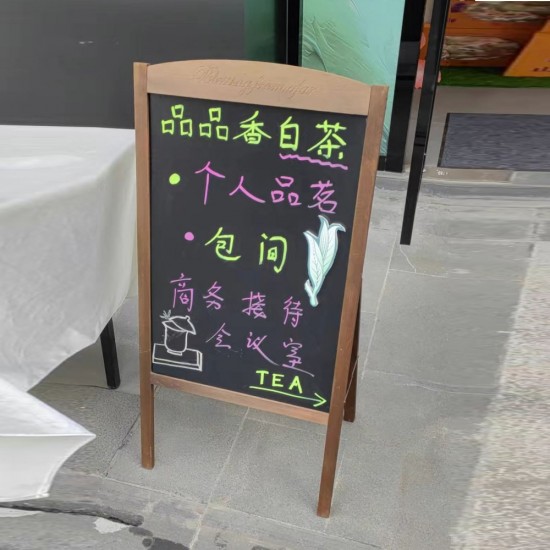 品品香白茶
• 个人品茗
• 包间
商务接待
会议室
TEA